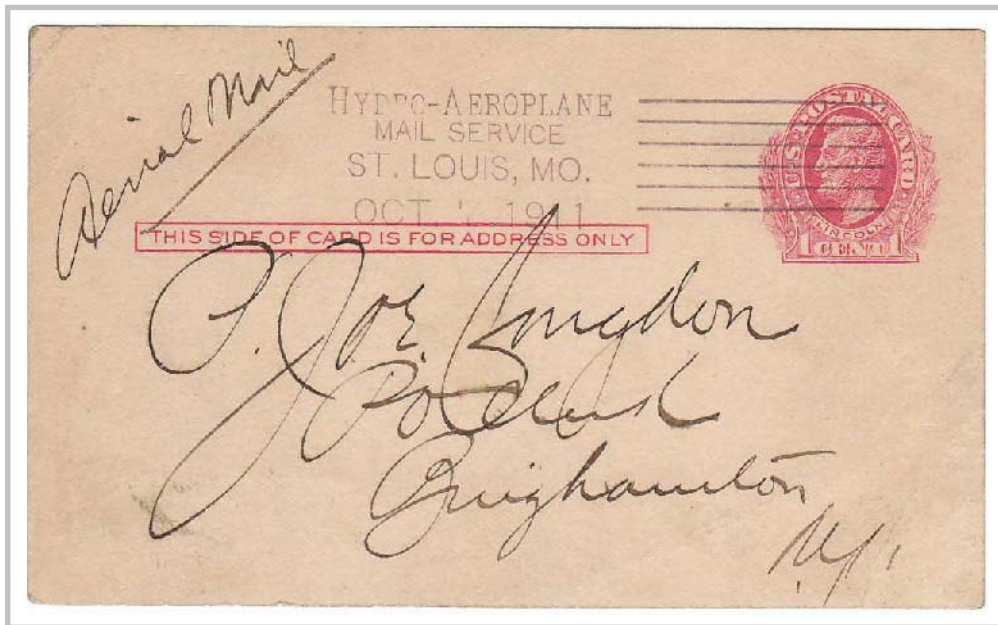 Aerial Mail
HYDRO-AEROPLANE
MAIL SERVICE
ST. LOUIS, MO.
OCT. 1911
U.S. POSTAL CARD
LINCOLN
1 CENT 1
THIS SIDE OF CARD IS FOR ADDRESS ONLY
P. Joe Langdon
PO Clerk
Binghamton
N.Y.